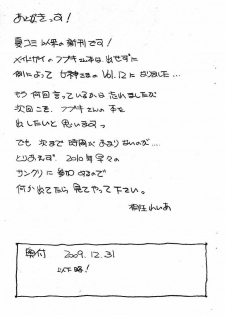 あとがきっす!
夏コミ以来の新刊です!
メイドガイのフブキさん本は出せずに
例によって女神さまのVol.12になりました…
もう何回言っているかは忘れましたが
次回こそ、フブキさんの本を
出したいと思いますっ
でも次まで時間があまりないのが…
とりあえず、2010年早々の
サンクリに参加するので
何か出てたら見てやって下さい。
有住れいあ
奥付 2009.12.31
以下略!